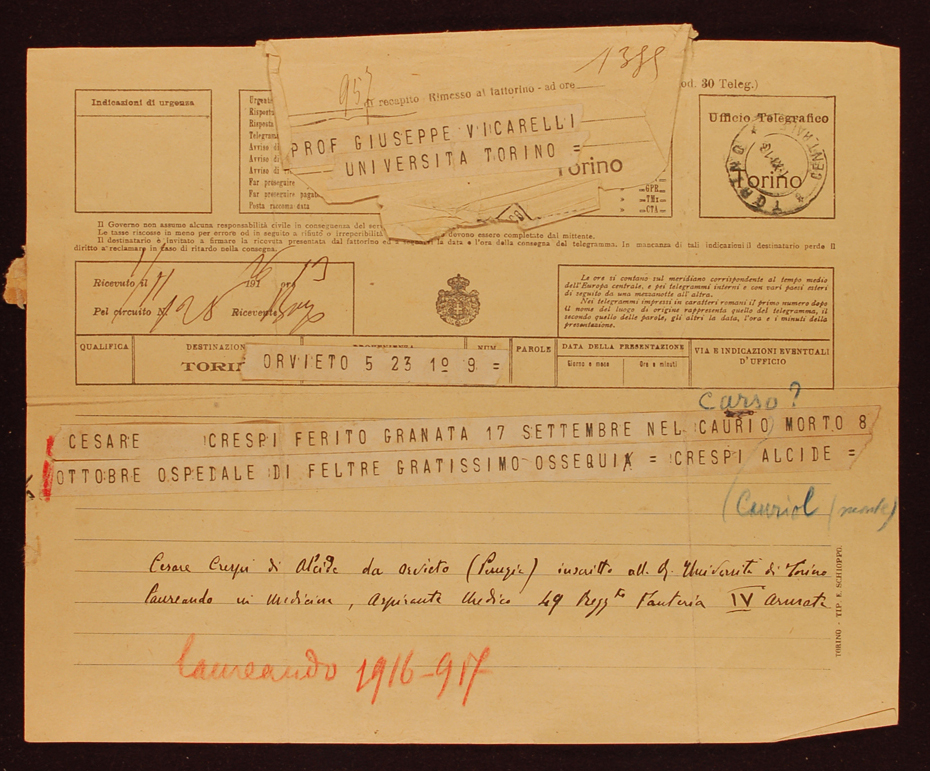 1399
957
di recapito - Rimesso al fattorino - ad ore
od. 30 Teleg.)
Indicazioni di urgenza
Urgente
Risposta
Risposta
Telegramma
Avviso di
Avviso di
Avviso di
Far proseguire
Far proseguire pagat
Posta raccom data
PROF GIUSEPPE VICARELLI
UNIVERSITA TORINO =
Torino
=GPR=
=TMx
=CTA=
Ufficio Telegrafico
Torino
TORINO CENTRALE
Il Governo non assume alcuna responsabilità civile in conseguenza del serv
Le tasse riscosse in meno per errore od in seguito a rifiuto o irreperibilità
devono essere completate dal mittente.
Il destinatario è invitato a firmare la ricevuta presentata dal fattorino ed a
la data e l'ora della consegna del telegramma. In mancanza di tali indicazioni il destinatario perde il
diritto a reclamare in caso di ritardo nella consegna.
Ricevuto il 191 ore 13
Pel circuito N. 128 Ricevente
Le ore si contano sul meridiano corrispondente al tempo medio
dell'Europa centrale, e pei telegrammi interni e con vari paesi esteri
di seguito da una mezzanotte all'altra.
Nei telegrammi impressi in caratteri romani il primo numero dopo
il nome del luogo di origine rappresenta quello del telegramma, il
secondo quello delle parole, gli altri la data, l'ora e i minuti della
presentazione.
QUALIFICA
DESTINAZION
NUM.
PAROLE
DATA DELLA PRESENTAZIONE
Giorno e mese
Ora e minuti
VIA E INDICAZIONI EVENTUALI
D'UFFICIO
TORIN
ORVIETO 5 23 1º 9 =
carso?
CESARE CRESPI FERITO GRANATA 17 SETTEMBRE NEL CAURIO MORTO 8
OTTOBRE OSPEDALE DI FELTRE GRATISSIMO OSSEQUI = CRESPI ALCIDE =
(Cauriol (monte)
Cesare Crespi di Alcide da Orvieto (Perugia) inscritto all. R. Università di Torino
Laureando in Medicina, Aspirante Medico 49 Reggto Fanteria IV Armata
laureando 1916-917
TORINO - TIP. E. SCHIOPPO.